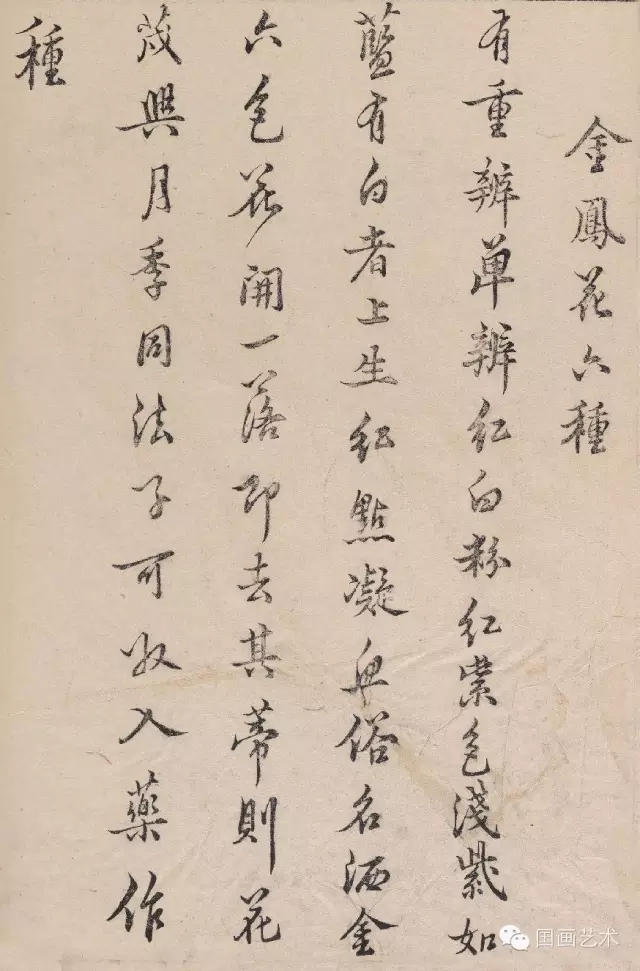 金鳳花六種
有重辨单辨紅白粉紅紫色淺紫如
藍有白者上生紅點凝血俗名洒金
六色花開一落即去其蒂則花
茂與月季同法子可收入藥作
種
国画艺术